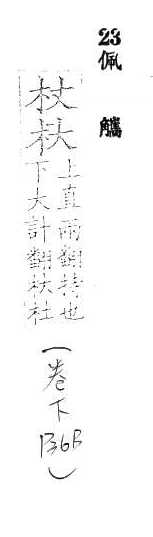 23佩觿
杖杕
上直兩翻持也
下大計翻杕杜
(卷下 P36B)